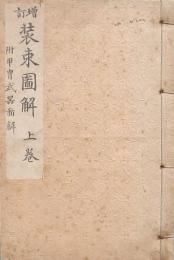 増訂
装束圖解 上巻
附甲冑武器圖解